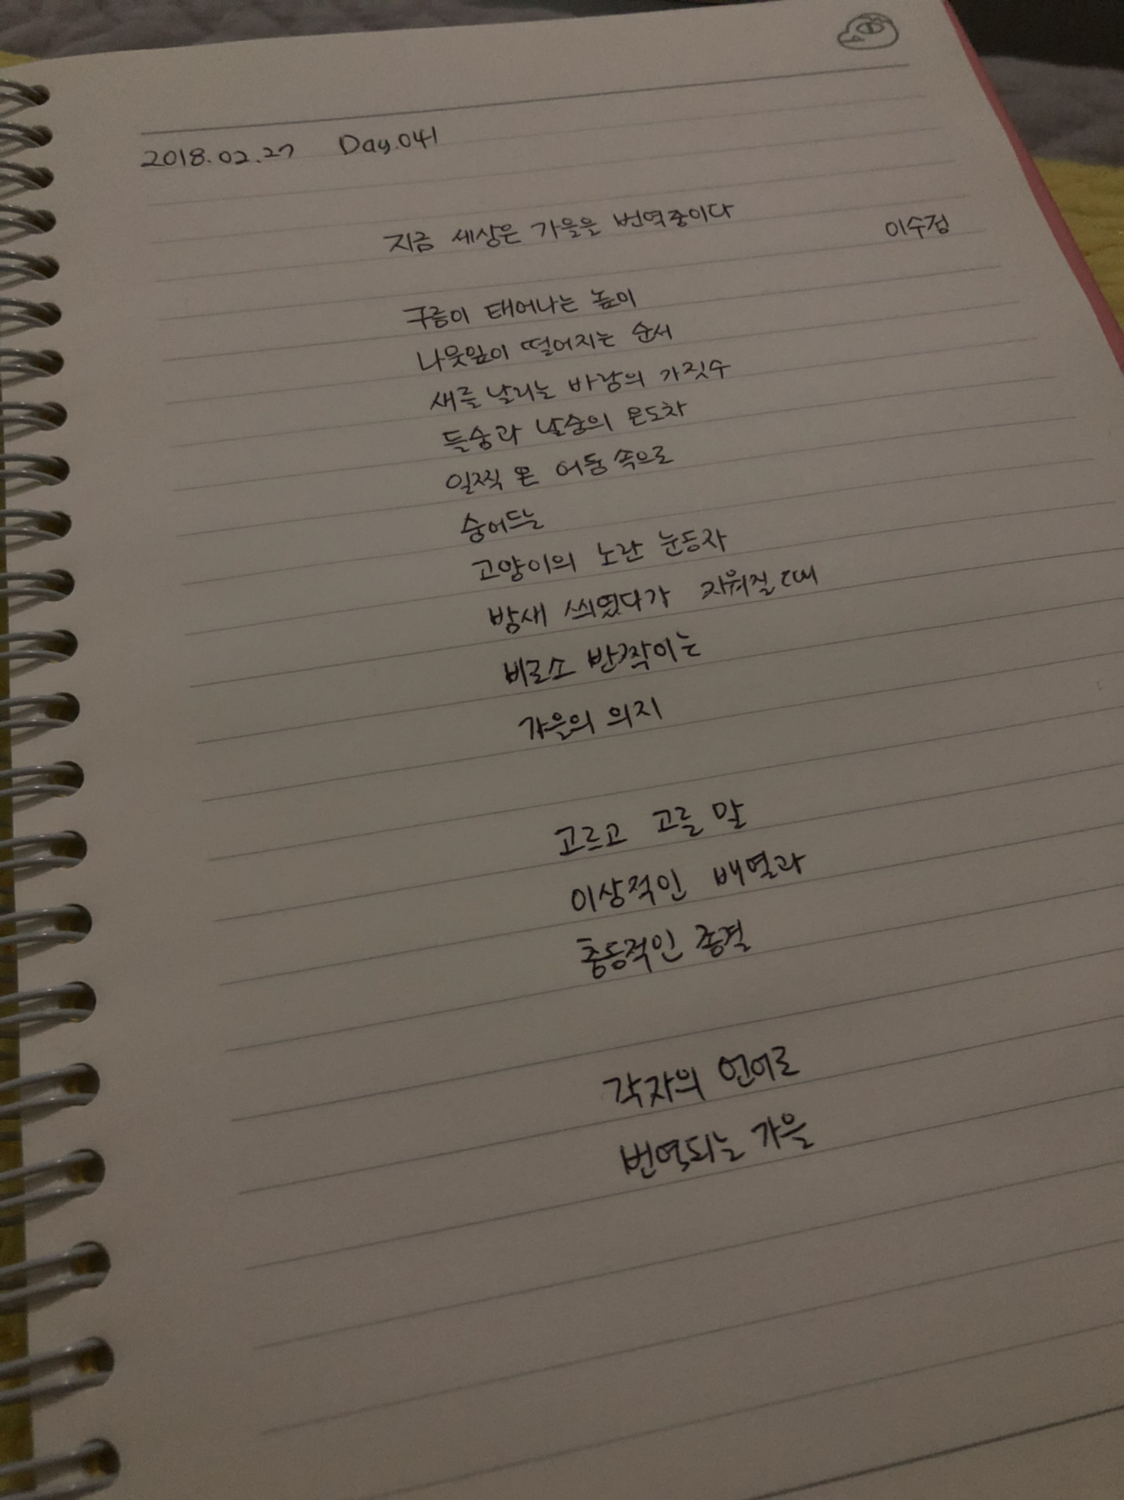 2018.02.27 Day.041
지금 세상은 가을을 번역중이다
이수정
구름이 태어나는 높이
나뭇잎이 떨어지는 순서
새를 날리는 바람의 가짓수
들숨과 날숨의 온도차
일찍 온 어둠 속으로
숨어드는
고양이의 노란 눈동자
밤새 씌였다가 지워질 때
비로소 반짝이는
가을의 의지
고르고 고른 말
이상적인 배열과
충동적인 종결
각자의 언어로
번역되는 가을